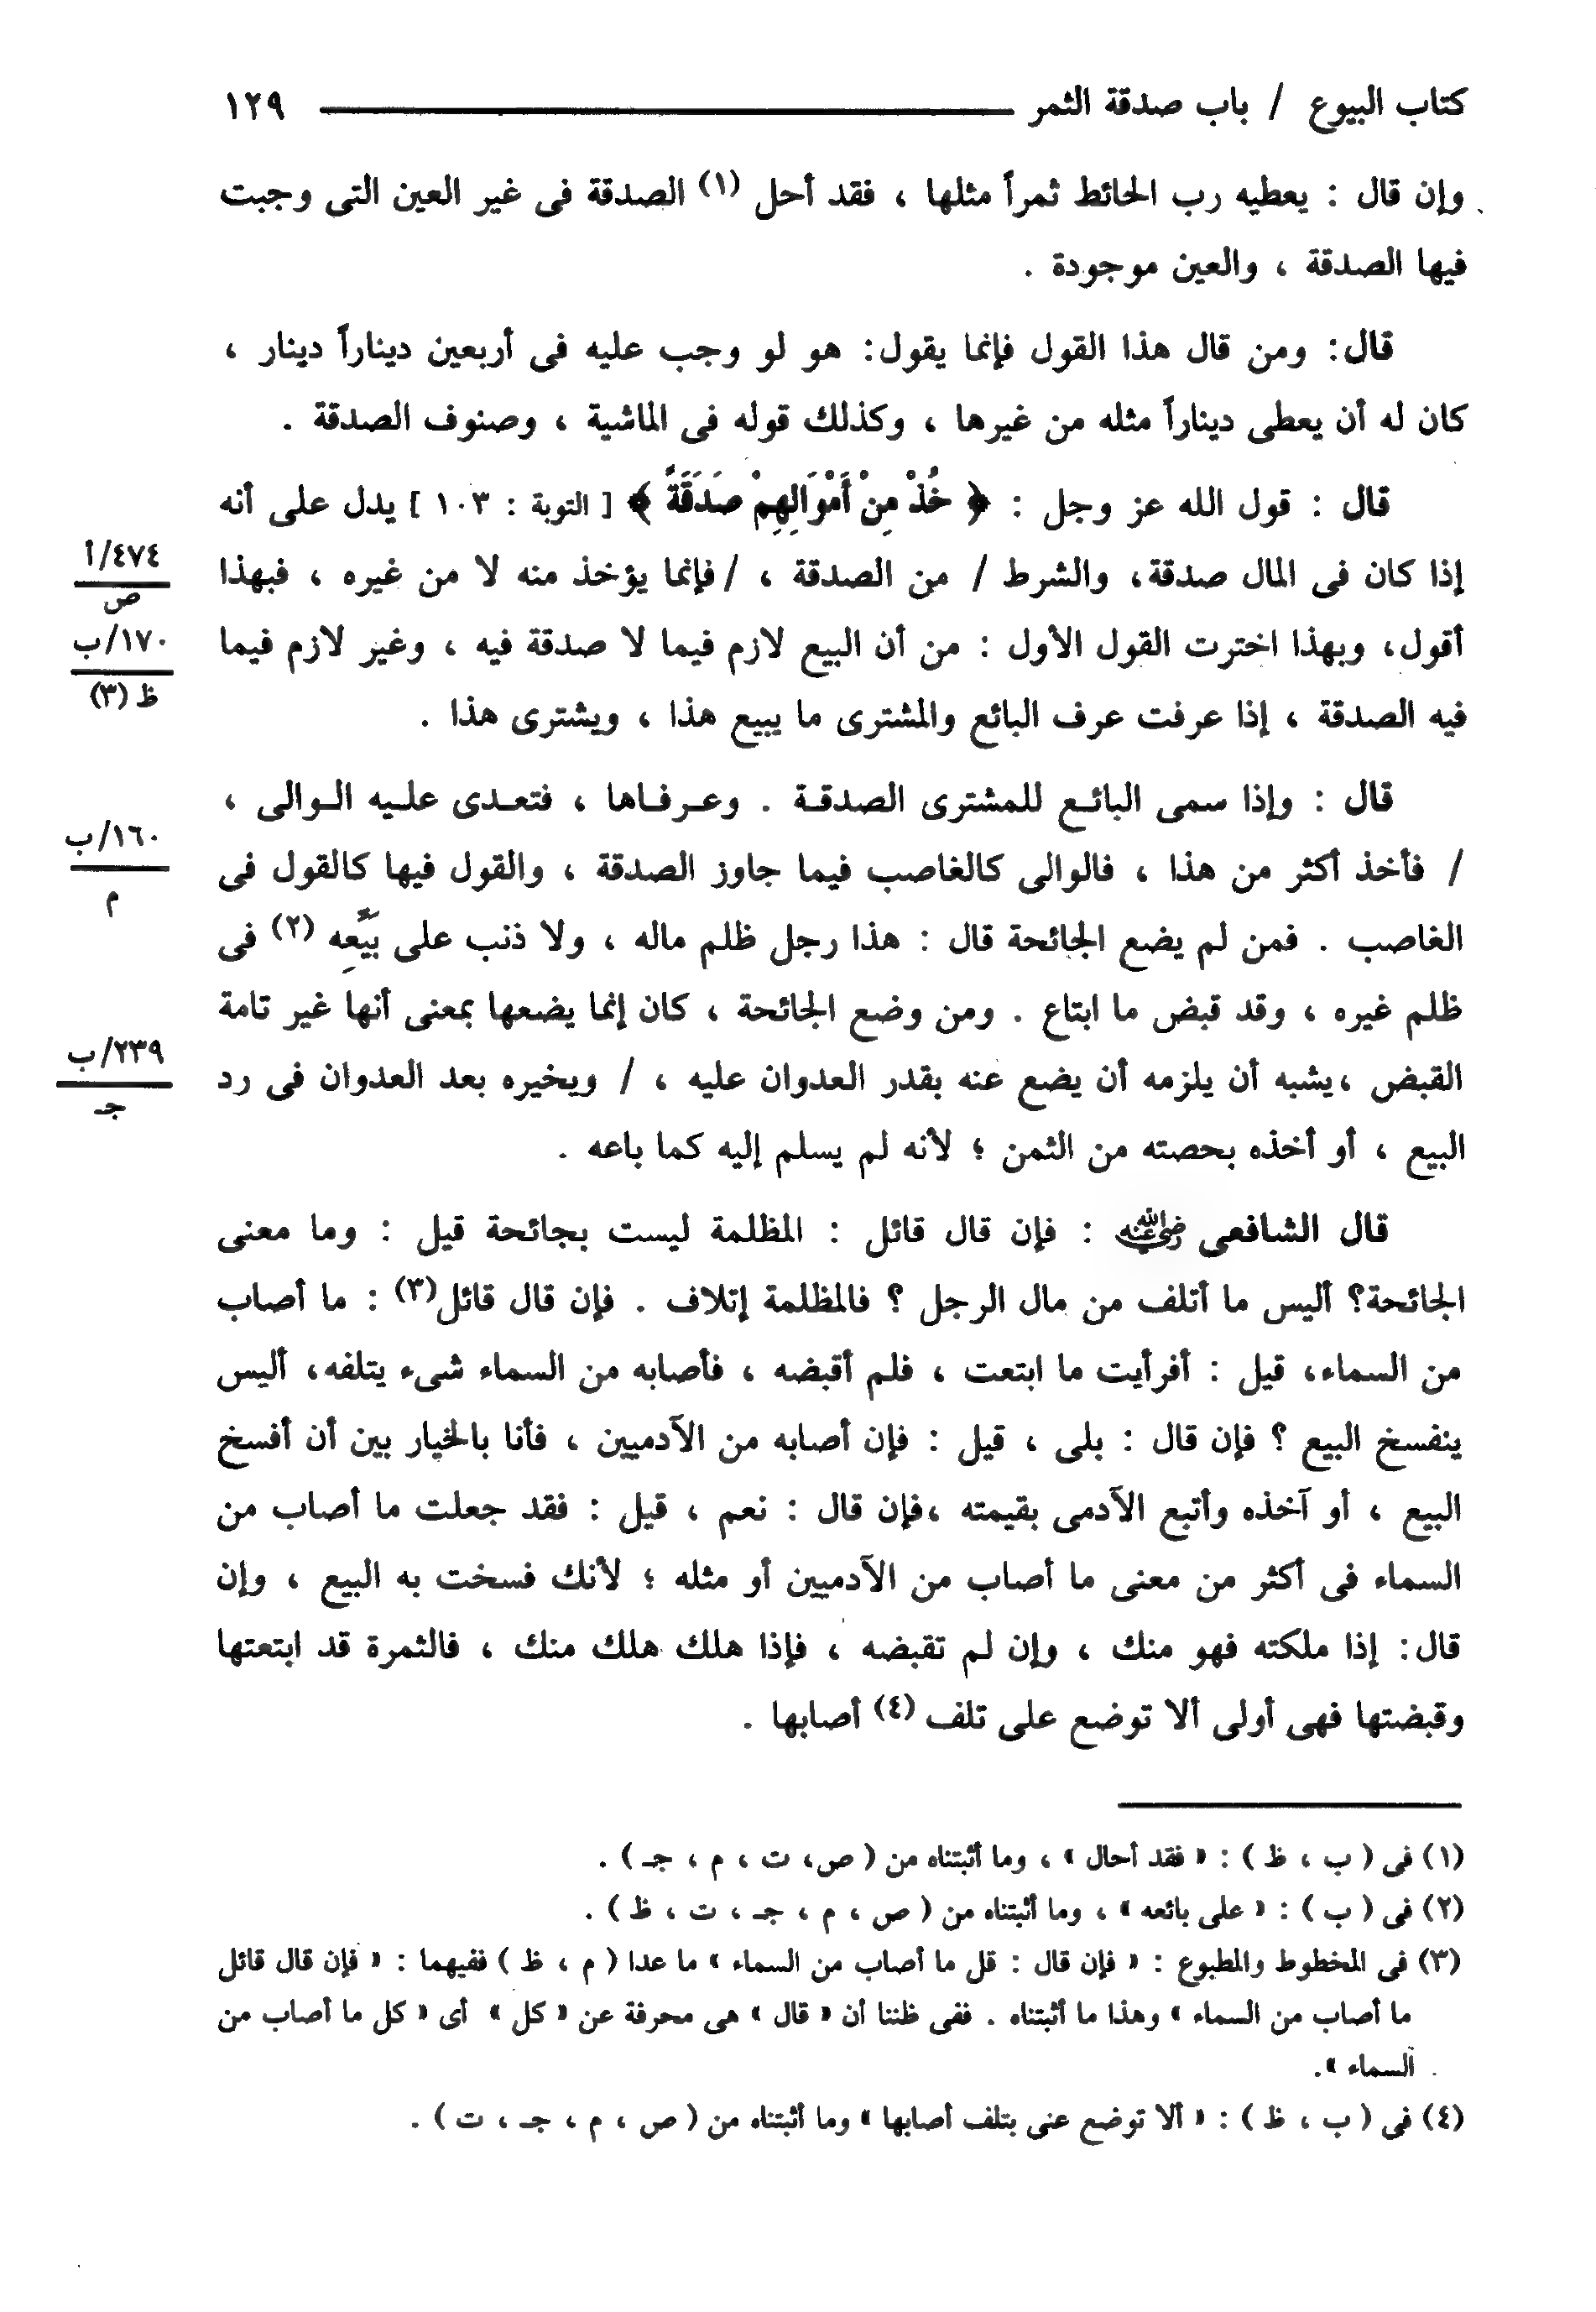 كتاب البيوع / باب صدقة الثمر ١٢٩
وإن قال : يعطيه رب الحائط ثمراً مثلها ، فقد أحل (١) الصدقة فى غير العين التى وجبت
فيها الصدقة ، والعين موجودة .
قال: ومن قال هذا القول فإنما يقول: هو لو وجب عليه فى أربعين ديناراً دينار ،
كان له أن يعطى ديناراً مثله من غيرها ، وكذلك قوله فى الماشية ، وصنوف الصدقة .
قال : قول الله عز وجل : ﴿ خُذْ مِنْ أَمْوَالِهِمْ صَدَقَةً ﴾ [ التوبة : ١٠٣ ] يدل على أنه
إذا كان فى المال صدقة، والشرط / من الصدقة ، /فإنما يؤخذ منه لا من غيره ، فبهذا
٤٧٤/أ
ص
أقول، وبهذا اخترت القول الأول : من أن البيع لازم فيما لا صدقة فيه ، وغير لازم فيما
١٧٠/ب
ظ (٣)
فيه الصدقة ، إذا عرفت عرف البائع والمشترى ما يبيع هذا ، ويشترى هذا .
قال : وإذا سمى البائع للمشترى الصدقة . وعرفاها ، فتعدى عليه الوالى ،
/ فأخذ أكثر من هذا ، فالوالى كالغاصب فيما جاوز الصدقة ، والقول فيها كالقول فى
١٦٠/ب
م
الغاصب . فمن لم يضع الجائحة قال : هذا رجل ظلم ماله ، ولا ذنب على بَيِّعِه (٢) فى
ظلم غيره ، وقد قبض ما ابتاع . ومن وضع الجائحة ، كان إنما يضعها بمعنى أنها غير تامة
القبض ،يشبه أن يلزمه أن يضع عنه بقدر العدوان عليه ، / ويخيره بعد العدوان فى رد
٢٣٩/ب
جـ
البيع ، أو أخذه بحصته من الثمن ؛ لأنه لم يسلم إليه كما باعه .
قال الشافعى رضي الله عنه : فإن قال قائل : المظلمة ليست بجائحة قيل : وما معنى
الجائحة؟ أليس ما أتلف من مال الرجل ؟ فالمظلمة إتلاف . فإن قال قائل(٣) : ما أصاب
من السماء، قيل : أفرأيت ما ابتعت ، فلم أقبضه ، فأصابه من السماء شىء يتلفه، أليس
ينفسخ البيع ؟ فإن قال : بلى ، قيل : فإن أصابه من الآدميين ، فأنا بالخيار بين أن أفسخ
البيع ، أو آخذه وأتبع الآدمى بقيمته ،فإن قال : نعم ، قيل : فقد جعلت ما أصاب من
السماء فى أكثر من معنى ما أصاب من الآدميين أو مثله ؛ لأنك فسخت به البيع ، وإن
قال: إذا ملكته فهو منك ، وإن لم تقبضه ، فإذا هلك هلك منك ، فالثمرة قد ابتعتها
وقبضتها فهى أولى ألا توضع على تلف (٤) أصابها .
(١) فى ( ب ، ظ ) : « فقد أحال » ، وما أثبتناه من ( ص، ت ، م ، جـ ) .
(٢) فى ( ب ) : « على بائعه » ، وما أثبتناه من ( ص ، م ، جـ ، ت ، ظ ) .
(٣) فى المخطوط والمطبوع : « فإن قال : قل ما أصاب من السماء » ما عدا ( م ، ظ ) ففيهما : « فإن قال قائل
ما أصاب من السماء » وهذا ما أثبتناه . ففى ظننا أن « قال » هى محرفة عن « كل » أى « كل ما أصاب من
السماء ».
(٤) فى ( ب ، ظ ) : « ألا توضع عنى بتلف أصابها » وما أثبتناه من ( ص ، م ، جـ ، ت ) .